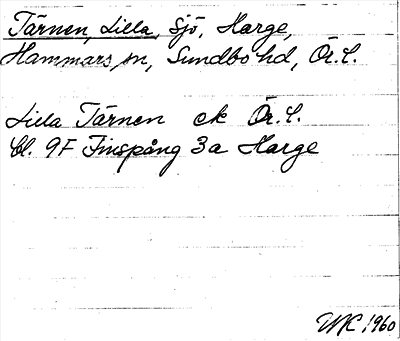 Tärnen, Lilla, Sjö, Harge,
Hammars sn, Sundbo hd, Ör. L.
Lilla Tärnen ek Ör. L.
Bl. 9F Finspång 3a Harge
1960